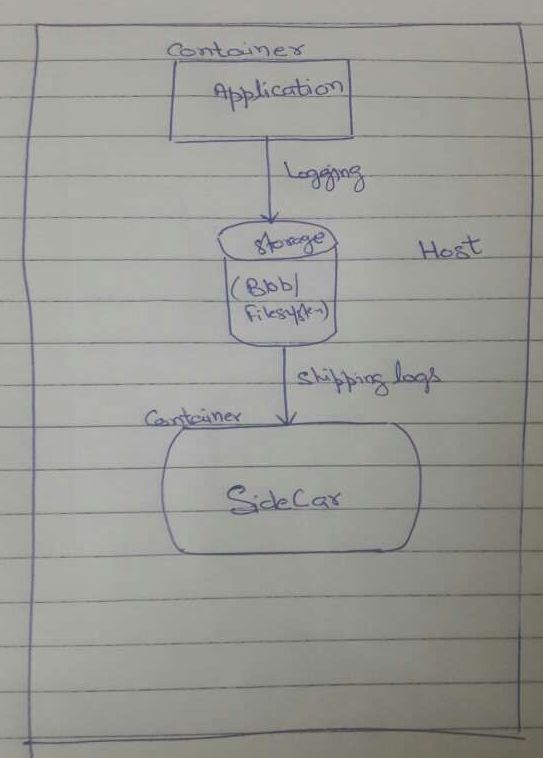 Container
Application
Logging
Storage
Host
(Blob/
Filesystem)
Shipping logs
Container
SideCar